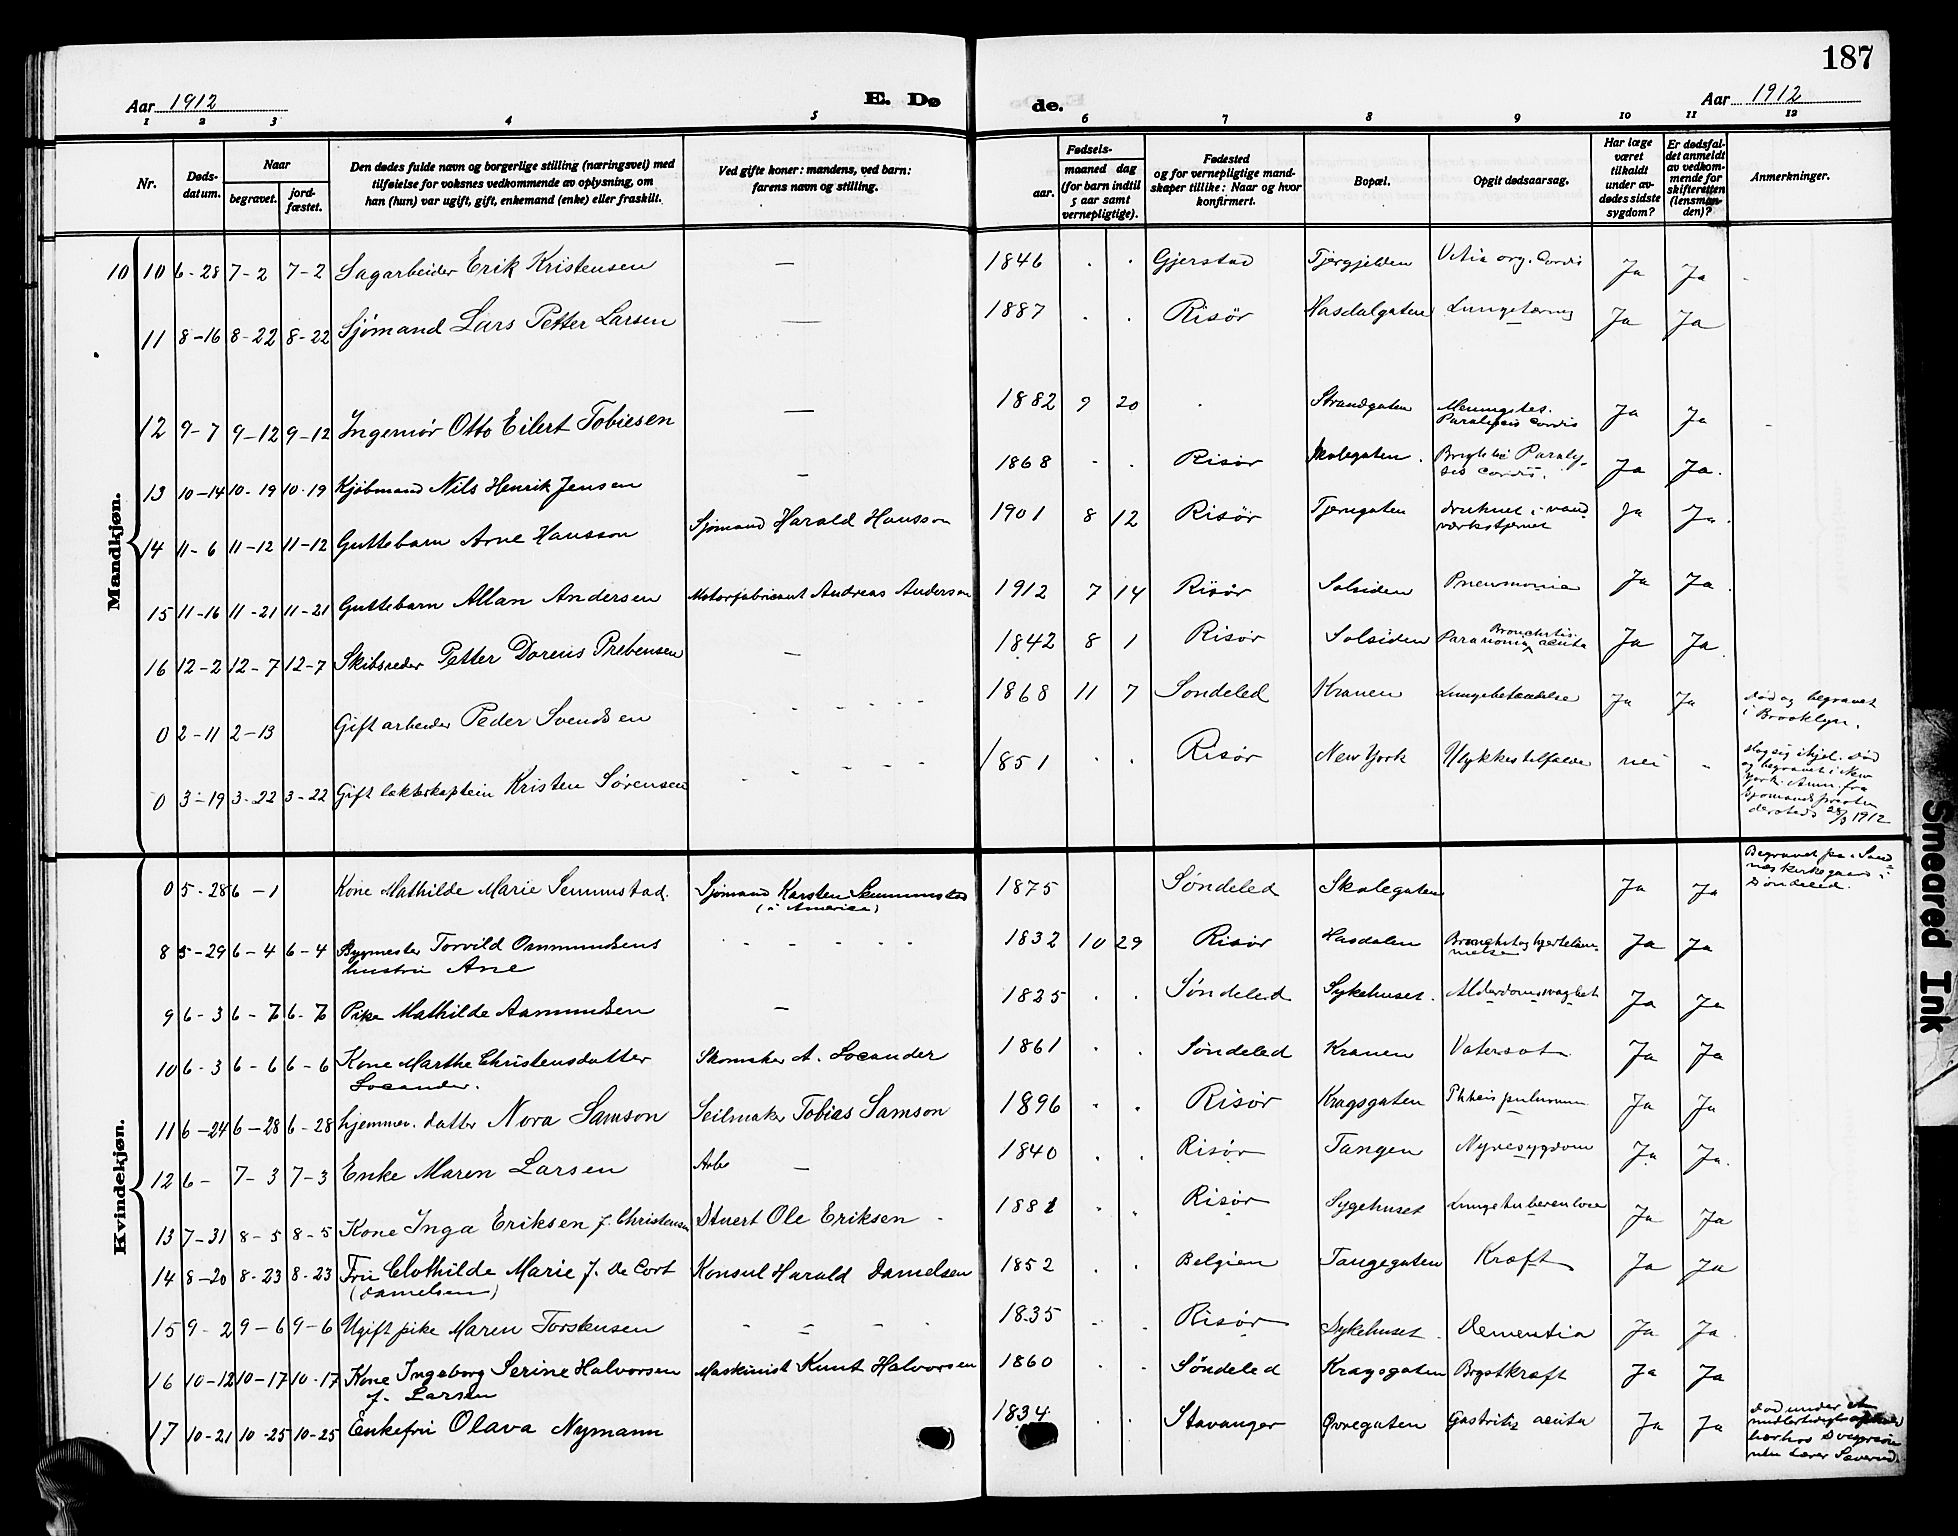 187
Aar 1912
E. Dø
de.
Aar 1912
1 2 3 4 5 6 7 8 9 10 11 12
Nr.
Døds-
datum.
Naar
begravet.
jord-
fæstet.
Den dødes fulde navn og borgerlige stilling (næringsvei) med
tilføielse for voksnes vedkommende av oplysning, om
han (hun) var ugift, gift, enkemand (enke) eller fraskilt.
Ved gifte koner: mandens, ved barn:
farens navn og stilling.
Fødsels-
aar.
maaned dag
(for barn indtil
5 aar samt
vernepligtige).
Fødested
og for vernepligtige mand-
skaper tillike: Naar og hvor
konfirmert.
Bopæl.
Opgit dødsaarsag.
Har læge
været
tilkaldt
under av-
dødes sidste
sygdom?
Er dødsfal-
det anmeldt
av vedkom-
mende for
skifteretten
(lensman-
den)?
Anmerkninger.
Mandkjøn.
10 10 6-28 7-2 7-2 Sagarbeider Erik Kristensen — 1846 . . Gjerstad Tjærgjelden Vitia org. Cordis Ja Ja
11 8-16 8-22 8-22 Sjømand Lars Petter Larsen — 1887 . . Risör Hasdalgaten Lungetæring Ja Ja
12 9-7 9-12 9-12 Ingeniør Otto Eilert Tobiesen — 1882 9 20 . Strandgaten Ja Ja
Paralysis cordis
13 10-14 10-19 10-19 Kjøbmand Nils Henrik Jensen — 1868 - . Risör Skolegaten. Paraly-
sis cordis. Ja Ja.
14 11-6 11-12 11-12 Guttebarn Arne Hansson Sjømand Harald Hansson 1901 8 12 Risør Tjerngaten druknet i vand
værkstjernet Ja Ja.
15 11-16 11-21 11-21 Guttebarn Allan Andersen Motorfabricant Andreas Anderson 1912 7 14 Risör Solsiden Pneumonia Ja Ja.
16 12-2 12-7 12-7 Skibsreder Petter Dorens Prebensen — 1842 8 1 Risør Solsiden Bronchitis
acuta Ja Ja.
0 2-11 2-13 Gift arbeider Peder Svendsen - - - - - 1868 11 7 Sondeled Kranen Lungebetændelse Ja Ja død og begravet
i Brooklyn.
0 3-19 3-22 3-22 Gift lekterkaptein Kristen Sørensen - - - - - 1851 . . Risør New York Ulykkestilfælde nei - slog sig ihjel. Død
og begravet i New
York. Anm. fra
sjømandspresten
dersteds 28/3 1912
Kvindekjøn.
0 5-28 6-1 Kone Mathilde Marie Semmstad. Sjømand Karsten Semmstad
(i America) 1875 Søndeled Skolegaten Ja Ja Begravet paa Sand-
næs kirkegaard i
Søndeled.
8 5-29 6-4 6-4 Bygmester Torvild Osmundsens
hustru Ane - - - - - 1832 10 29 Risør Hasdalen Ja Ja
9 6-3 6-7 6-7 Pike Mathilde Aanmundsen — 1825 . . Søndeled Sykehuset. Alderdomssvaghet Ja Ja
10 6-3 6-6 6-6 Kone Marthe Christensdatter
Locander. Skomaker A. Locander 1861 . . Søndeled Kranen Vatersot Ja Ja
11 6-24 6-28 6-28 hjemmev. datter Nora Samson Seilmaker Tobias Samson 1896 . . Risør Kragsgaten Phtisis pulmonum Ja Ja
12 6- 7-3 7-3 Enke Maren Larsen Arb. — 1840 . . Risør Tangen Nyresygdom Ja Ja.
13 7-31 8-5 8-5 Kone Inga Eriksen f. Christensen Stuert Ole Eriksen - 1881 . . Risør Sygehuset Lungetuberculose Ja Ja
14 8-20 8-23 8-23 Fru Clothilde Marie f. De Cort
(Danielsen) Konsul Harald Danielsen 1852 . . Belgien Tangegaten Kræft Ja Ja
15 9-2 9-6 9-6 Ugift pike Maren Torstensen - - - - 1835 . . Risør Sykehuset. Dementia Ja Ja
16 10-12 10-17 10-17 Kone Ingeborg Serine Halvorsen
f. Larsen Maskinist Knut Halvorsen 1860 . . Søndeled Kragsgaten Brystkræft Ja Ja
17 10-21 10-25 10-25 Enkefru Olava Nymann 1834 . . Stavanger Øvregaten Gastritis acuta Ja Ja død under et
midlertidigt ophold
her hos Svigersøn-
nen Lærer
Smeared Ink